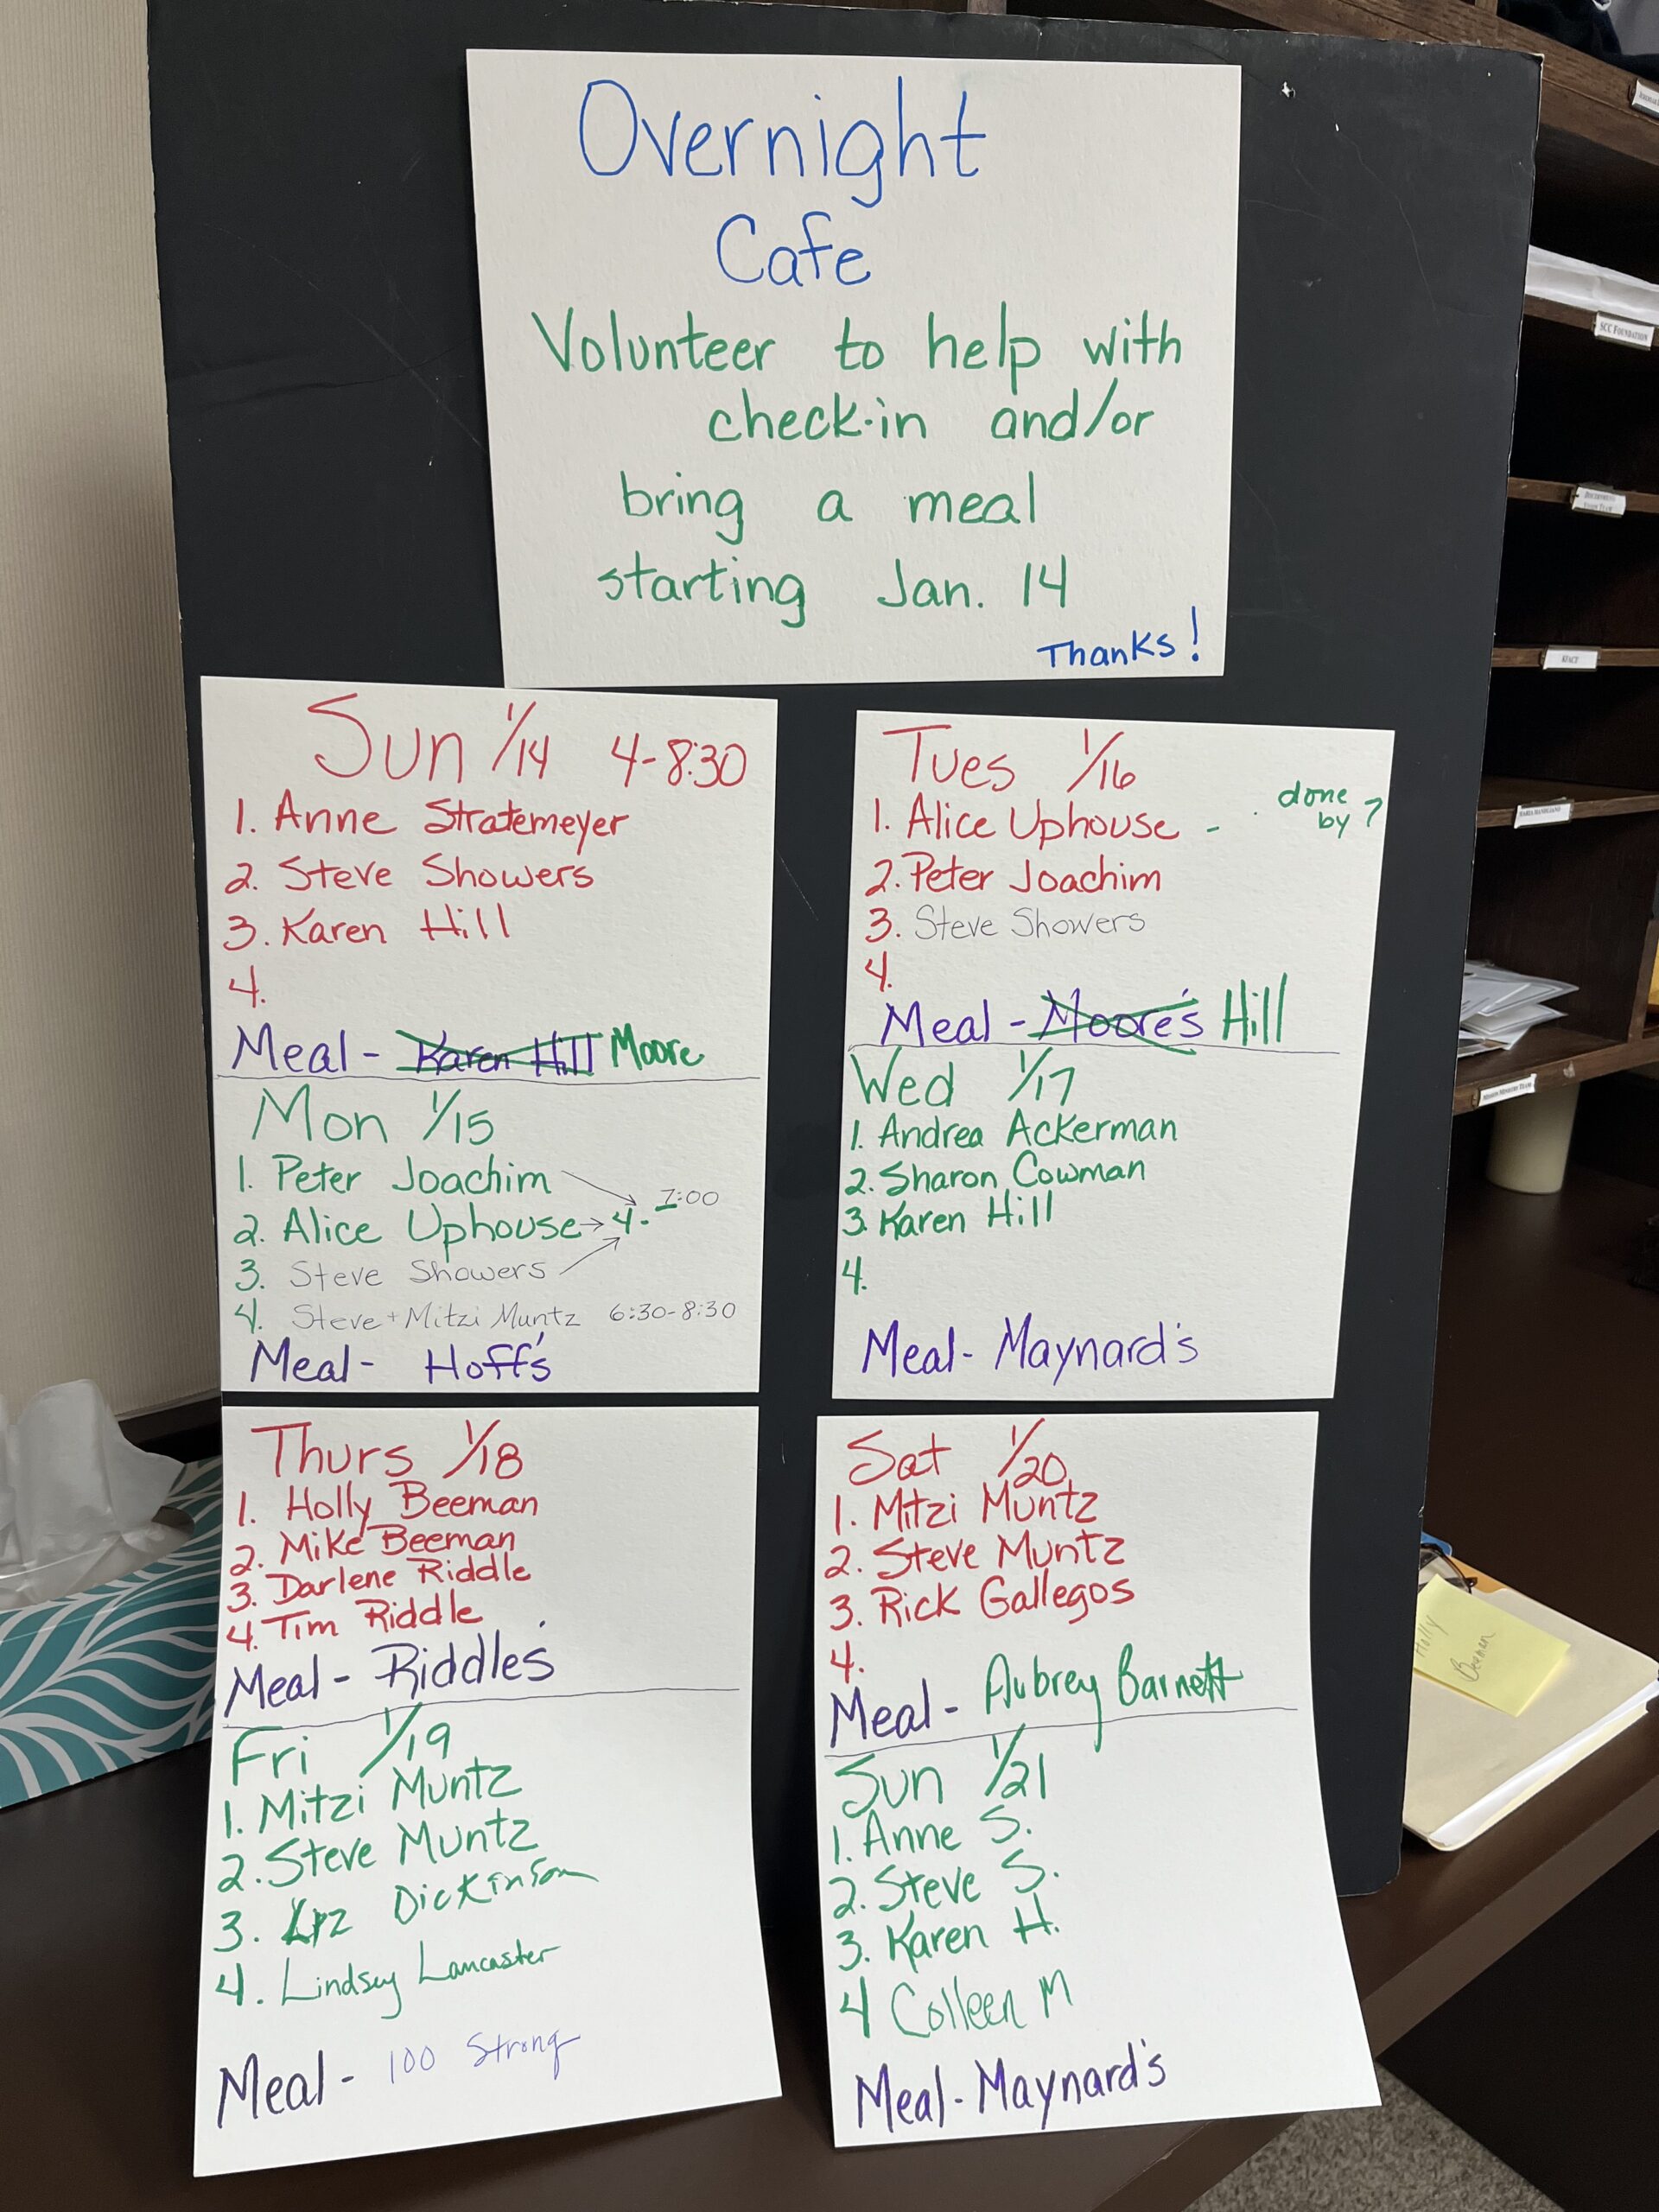 Overnight
Cafe
Volunteer to help with
check-in and/or
bring a meal
starting Jan. 14
Thanks!
Sun 1/14 4-8:30
1. Anne Stratemeyer
2. Steve Showers
3. Karen Hill
4.
Meal - Karen Hill Moore
Mon 1/15
1. Peter Joachim
2. Alice Uphouse → 4 - 7:00
3. Steve Showers
4. Steve + Mitzi Muntz 6:30-8:30
Meal - Hoff's
Tues 1/16
1. Alice Uphouse - done by 7
2. Peter Joachim
3. Steve Showers
4.
Meal - Moore's Hill
Wed 1/17
1. Andrea Ackerman
2. Sharon Cowman
3. Karen Hill
4.
Meal - Maynard's
Thurs 1/18
1. Holly Beeman
2. Mike Beeman
3. Darlene Riddle
4. Tim Riddle
Meal - Riddle's
Fri 1/19
1. Mitzi Muntz
2. Steve Muntz
3. Liz Dickinson
4. Lindsey Lancaster
Meal - 100 Strong
Sat 1/20
1. Mitzi Muntz
2. Steve Muntz
3. Rick Gallegos
4.
Meal - Aubrey Barnett
Sun 1/21
1. Anne S.
2. Steve S.
3. Karen H.
4 Colleen M
Meal - Maynard's
SCC FOUNDATION
Holly
Beeman